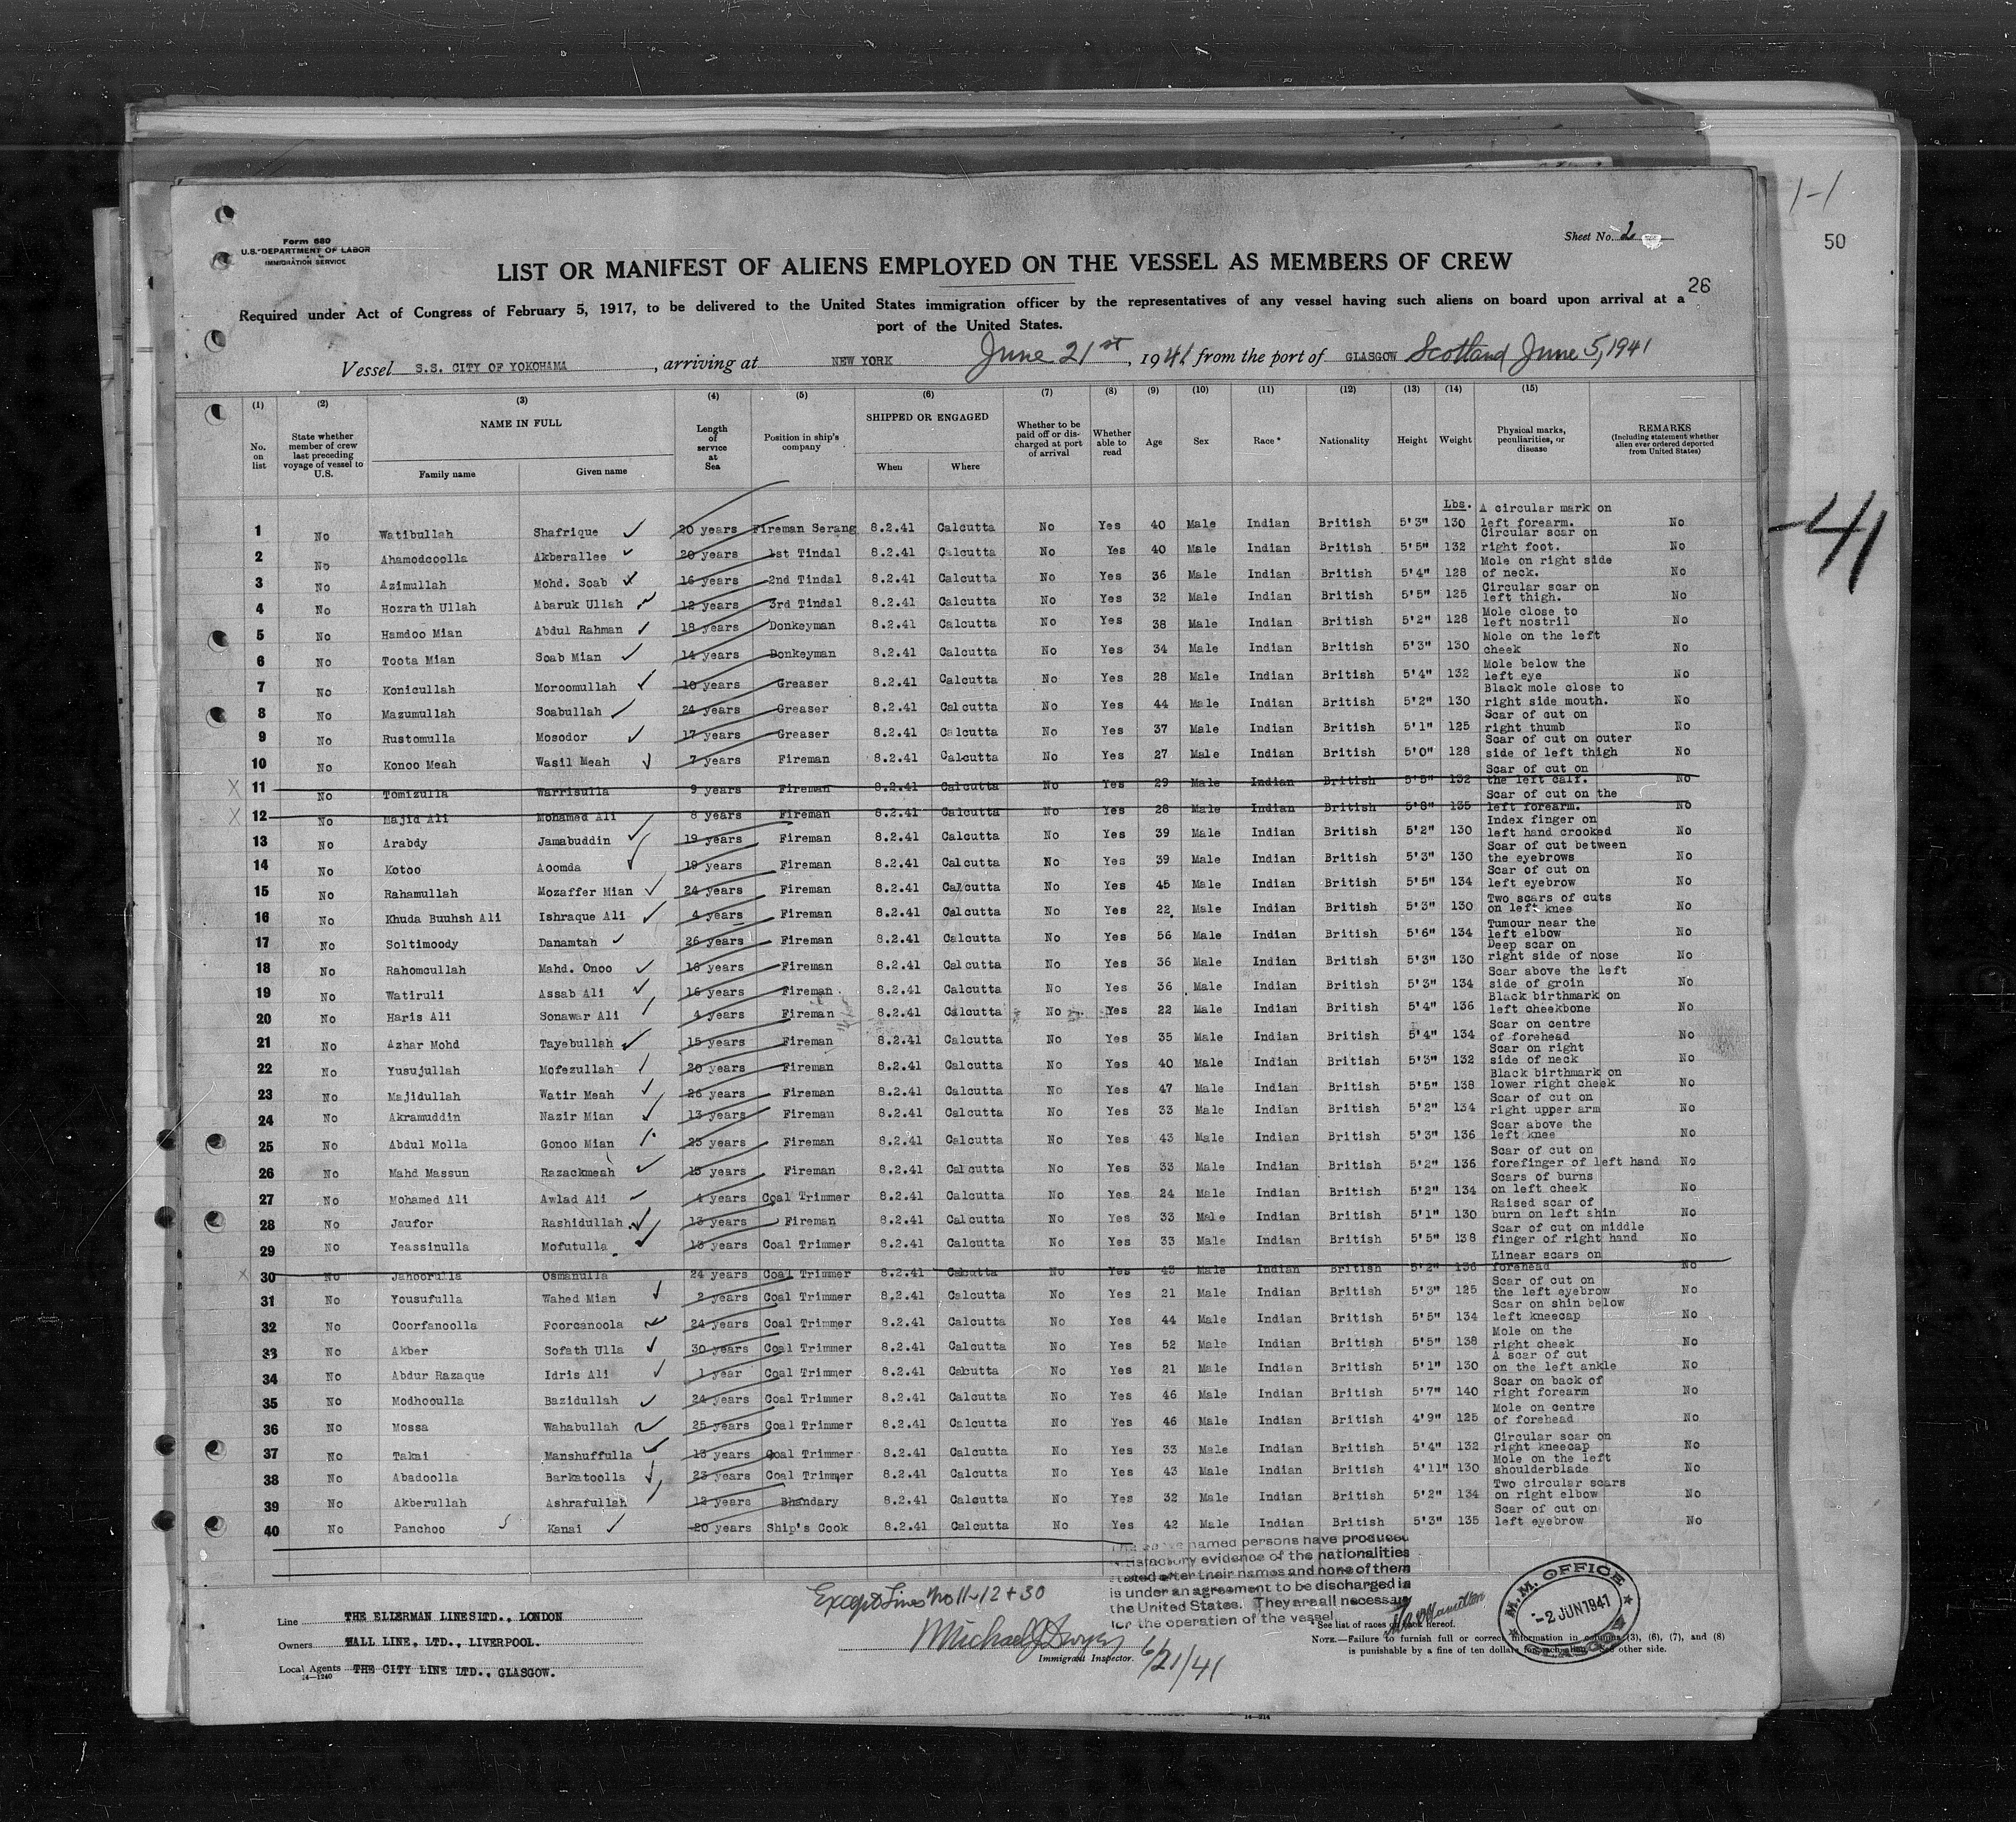 1-1
50
Form 680
U.S. DEPARTMENT OF LABOR
IMMIGRATION SERVICE
Sheet No. 2
LIST OR MANIFEST OF ALIENS EMPLOYED ON THE VESSEL AS MEMBERS OF CREW
26
Required under Act of Congress of February 5, 1917, to be delivered to the United States immigration officer by the representatives of any vessel having such aliens on board upon arrival at a
port of the United States.
Vessel S.S. CITY OF YOKOHAMA, arriving at NEW YORK June 21st, 1941 from the port of GLASGOW Scotland June 5, 1941
(1) (2) (3) (4) (5) (6) (7) (8) (9) (10) (11) (12) (13) (14) (15)
No. on list State whether member of crew last preceding voyage of vessel to U.S. NAME IN FULL Family name Given name Length of service at Sea Position in ship's company SHIPPED OR ENGAGED When Where Whether to be paid off or discharged at port of arrival Whether able to read Age Sex Race* Nationality Height Weight Physical marks, peculiarities, or disease REMARKS (Including statement whether alien ever ordered deported from United States)
Lbs.
1 No Watibullah Shafrique 20 years Fireman Serang 8.2.41 Calcutta No Yes 40 Male Indian British 5'3" 130 A circular mark on left forearm. No
2 No Ahamodcoolla Akberallee 20 years 1st Tindal 8.2.41 Calcutta No Yes 40 Male Indian British 5'5" 132 Circular scar on right foot. No
3 No Azimullah Mohd. Soab 16 years 2nd Tindal 8.2.41 Calcutta No Yes 36 Male Indian British 5'4" 128 Mole on right side of neck. No
4 No Hozrath Ullah Abaruk Ullah 12 years 3rd Tindal 8.2.41 Calcutta No Yes 32 Male Indian British 5'5" 125 Circular scar on left thigh. No
5 No Hamdoo Mian Abdul Rahman 18 years Donkeyman 8.2.41 Calcutta No Yes 38 Male Indian British 5'2" 128 Mole close to left nostril No
6 No Toota Mian Soab Mian 14 years Donkeyman 8.2.41 Calcutta No Yes 34 Male Indian British 5'3" 130 Mole on the left cheek No
7 No Konicullah Moroomullah 10 years Greaser 8.2.41 Calcutta No Yes 28 Male Indian British 5'4" 132 Mole below the left eye No
8 No Mazumullah Soabullah 24 years Greaser 8.2.41 Calcutta No Yes 44 Male Indian British 5'2" 130 Black mole close to right side mouth. No
9 No Rustomulla Mosodor 17 years Greaser 8.2.41 Calcutta No Yes 37 Male Indian British 5'1" 125 Scar of cut on right thumb No
10 No Konoo Meah Wasil Meah 7 years Fireman 8.2.41 Calcutta No Yes 27 Male Indian British 5'0" 128 Scar of cut on outer side of left thigh No
11 No Tomizulla Warrisulla 9 years Fireman 8.2.41 Calcutta No Yes 29 Male Indian British 5'5" 132 Scar of cut on the left calf. No
12 No Majid Ali Mohamed Ali 8 years Fireman 8.2.41 Calcutta No Yes 28 Male Indian British 5'8" 135 Scar of cut on the left forearm. No
13 No Arabdy Jamabuddin 19 years Fireman 8.2.41 Calcutta No Yes 39 Male Indian British 5'2" 130 Index finger on left hand crooked No
14 No Kotoo Aoomda 19 years Fireman 8.2.41 Calcutta No Yes 39 Male Indian British 5'3" 130 Scar of cut between the eyebrows No
15 No Rahamullah Mozaffer Mian 24 years Fireman 8.2.41 Calcutta No Yes 45 Male Indian British 5'5" 134 Scar of cut on left eyebrow No
16 No Khuda Buuhsh Ali Ishraque Ali 4 years Fireman 8.2.41 Calcutta No Yes 22 Male Indian British 5'3" 130 Two scars of cuts on left knee No
17 No Soltimoody Danamtah 26 years Fireman 8.2.41 Calcutta No Yes 56 Male Indian British 5'6" 134 Tumour near the left elbow No
18 No Rahomcullah Mahd. Onoo 16 years Fireman 8.2.41 Calcutta No Yes 36 Male Indian British 5'3" 130 Deep scar on right side of nose No
19 No Watiruli Assab Ali 16 years Fireman 8.2.41 Calcutta No Yes 36 Male Indian British 5'3" 134 Scar above the left side of groin No
20 No Haris Ali Sonawar Ali 4 years Fireman 8.2.41 Calcutta No Yes 22 Male Indian British 5'4" 136 Black birthmark on left cheekbone No
21 No Azhar Mohd Tayebullah 15 years Fireman 8.2.41 Calcutta No Yes 35 Male Indian British 5'4" 134 Scar on centre of forehead No
22 No Yusujullah Mofezullah 20 years Fireman 8.2.41 Calcutta No Yes 40 Male Indian British 5'3" 132 Scar on right side of neck No
23 No Majidullah Watir Meah 26 years Fireman 8.2.41 Calcutta No Yes 47 Male Indian British 5'5" 138 Black birthmark on lower right cheek No
24 No Akramuddin Nazir Mian 13 years Fireman 8.2.41 Calcutta No Yes 33 Male Indian British 5'2" 134 Scar of cut on right upper arm No
25 No Abdul Molla Gonoo Mian 23 years Fireman 8.2.41 Calcutta No Yes 43 Male Indian British 5'3" 136 Scar above the left knee No
26 No Mahd Massun Razackmeah 13 years Fireman 8.2.41 Calcutta No Yes 33 Male Indian British 5'2" 136 Scar of cut on forefinger of left hand No
27 No Mohamed Ali Awlad Ali 4 years Coal Trimmer 8.2.41 Calcutta No Yes 24 Male Indian British 5'2" 134 Scars of burns on left cheek No
28 No Jaufor Rashidullah 13 years Fireman 8.2.41 Calcutta No Yes 33 Male Indian British 5'1" 130 Raised scar of burn on left shin No
29 No Yeassinulla Mofutulla 13 years Coal Trimmer 8.2.41 Calcutta No Yes 33 Male Indian British 5'5" 138 Scar of cut on middle finger of right hand No
30 No Jahoorulla Osmanulla 24 years Coal Trimmer 8.2.41 Calcutta No Yes 43 Male Indian British 5'2" 136 Linear scars on forehead No
31 No Yousufulla Wahed Mian 2 years Coal Trimmer 8.2.41 Calcutta No Yes 21 Male Indian British 5'3" 125 Scar of cut on the left eyebrow No
32 No Coorfanoolla Foorcanoola 24 years Coal Trimmer 8.2.41 Calcutta No Yes 44 Male Indian British 5'5" 134 Scar on shin below left kneecap No
33 No Akber Sofath Ulla 30 years Coal Trimmer 8.2.41 Calcutta No Yes 52 Male Indian British 5'5" 138 Mole on the right cheek No
34 No Abdur Razaque Idris Ali 1 year Coal Trimmer 8.2.41 Calcutta No Yes 21 Male Indian British 5'1" 130 A scar of cut on the left ankle No
35 No Modhooulla Bazidullah 24 years Coal Trimmer 8.2.41 Calcutta No Yes 46 Male Indian British 5'7" 140 Scar on back of right forearm No
36 No Mossa Wahabullah 25 years Coal Trimmer 8.2.41 Calcutta No Yes 46 Male Indian British 4'9" 125 Mole on centre of forehead No
37 No Takai Manshuffulla 13 years Coal Trimmer 8.2.41 Calcutta No Yes 33 Male Indian British 5'4" 132 Circular scar on right kneecap No
38 No Abadoolla Barkatoolla 23 years Coal Trimmer 8.2.41 Calcutta No Yes 43 Male Indian British 4'11" 130 Mole on the left shoulderblade No
39 No Akberullah Ashrafullah 12 years Bhandary 8.2.41 Calcutta No Yes 32 Male Indian British 5'2" 134 Two circular scars on right elbow No
40 No Panchoo Kanai 20 years Ship's Cook 8.2.41 Calcutta No Yes 42 Male Indian British 5'3" 135 Scar of cut on left eyebrow No
-41
named persons have produced
satisfactory evidence of the nationalities
stated after their names and none of them
is under an agreement to be discharged in
the United States. They are all necessary
for the operation of the vessel
Except Lines No 11-12 + 30
Line THE ELLERMAN LINES LTD., LONDON
Owners HALL LINE, LTD., LIVERPOOL.
Local Agents THE CITY LINE LTD., GLASGOW.
14-1240
Michael J Dwyer
Immigrant Inspector. 6/21/41
Hamilton
* See list of races on back hereof.
NOTE.—Failure to furnish full or correct information in columns (3), (6), (7), and (8)
is punishable by a fine of ten dollars for each alien. See other side.
M.M. OFFICE
-2 JUN 1941
GLASGOW
14-214